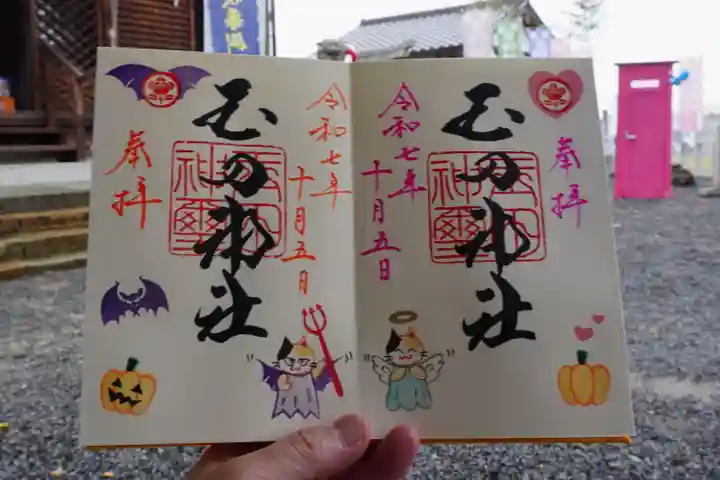 奉拝
玉田神社
令和七年
十月五日
令和七年
十月五日
玉田神社
奉拝